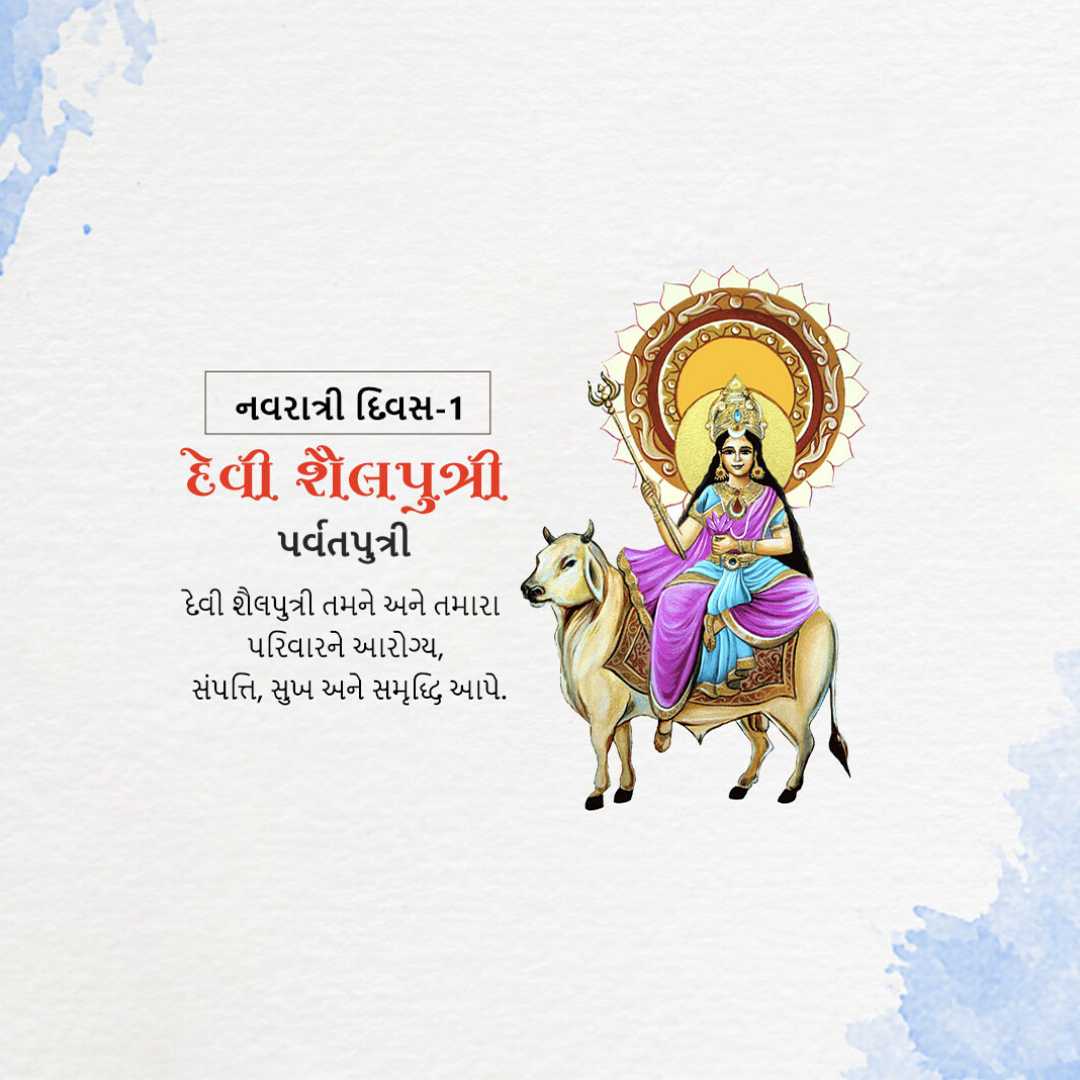 નવરાત્રી દિવસ-1
દેવી શૈલપુત્રી
પર્વતપુત્રી
દેવી શૈલપુત્રી તમને અને તમારા
પરિવારને આરોગ્ય,
સંપત્તિ, સુખ અને સમૃધ્ધિ આપે.